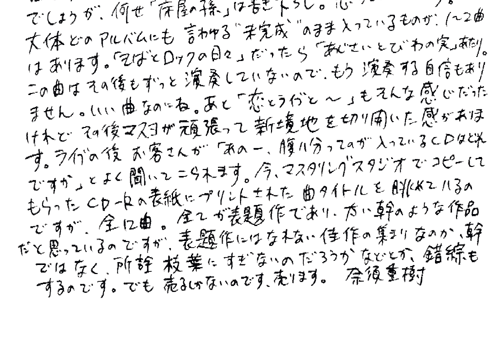 でしょうが、何せ「床屋の孫」は書き下ろし。
大体どのアルバムにも言わゆる"未完成"のまま入っているものが、1〜2曲
はあります。「そばとロックの日々」だったら「あじさいとびわの実」あたり。
この曲はその後もずっと演奏していないので、もう演奏する自信もあり
ません。いい曲なのにね。あと「恋とライヴと〜」もそんな感じだった
けれど その後マスヨが頑張って新境地を切り開いた感がありま
す。ライヴの後 お客さんが「あの一、腹八分ってのが入っているCDはどれ
ですか」とよく聞いてこられます。今、マスタリングスタジオでコピーして
もらったCD-Rの表紙にプリントされた曲タイトルを眺めているの
ですが、全12曲。全てが表題作であり、太い幹のような作品
だと思っているのですが、表題作にはなれない佳作の集まりなのか、幹
ではなく、所詮 枝葉にすぎないのだろうかなどとか、錯綜も
するのです。でも 売るしかないのです、売ります。 奈須重樹